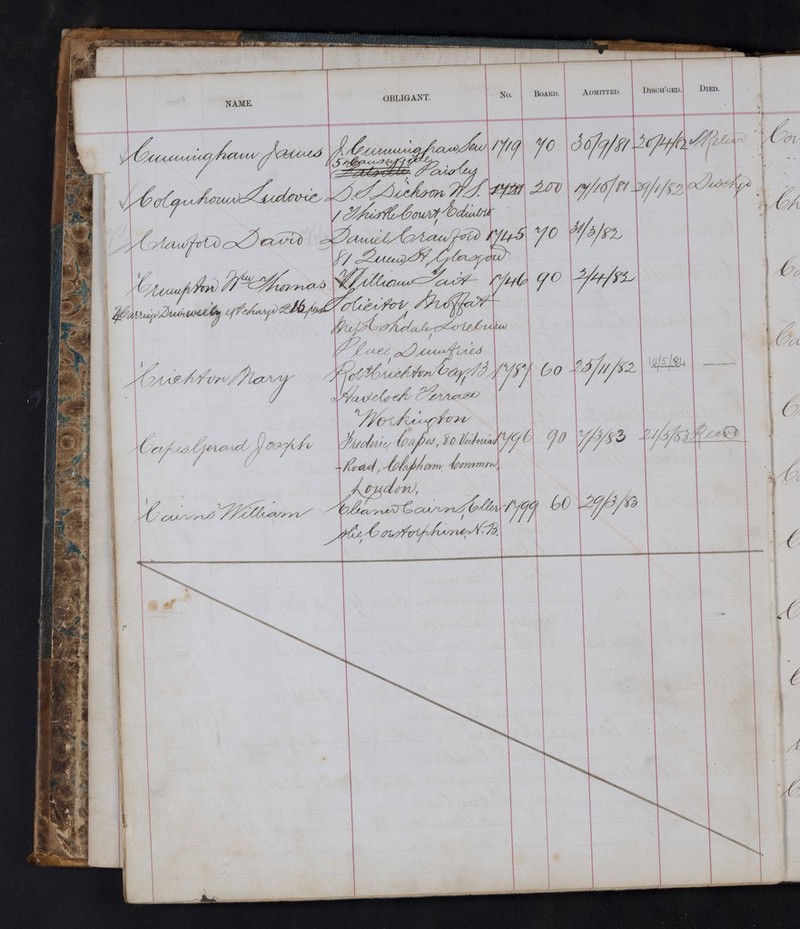 NAME. OBLIGANT. No. BOARD. ADMITTED. DISCH'GED. DIED.
Cunningham James J. Cunningham Sen 1719 70 30/9/81 20/4/82
5 Causeyside
Paisley
Colquhoun Ludovic D. S. Dickson W.S. 1721 200 17/10/81 29/1/82 Dischgd
1 Thistle Court Edinbro
Crawford David Daniel Crawford 1745 70 31/3/82
81 Queen St Glasgow
Crumpton Wm Thomas William Tait 1746 90 3/4/82
Carriage Drive weekly
Solicitor Moffat
Eskdale, Loreburn
Place, Dumfries
Crichton Mary Robt Crichton Cay, 13 1787 60 25/11/82 10/5/84 —
Havelock Terrace
Workington
Capes Gerard Joseph Frederic Capes, 80 Victoria 1796 90 7/3/83 21/5/83
Road, Clapham Common,
London,
Cairns William Eleanor Cairns, Ellers 1799 60 29/3/83
lie, Corstorphine, N.B.